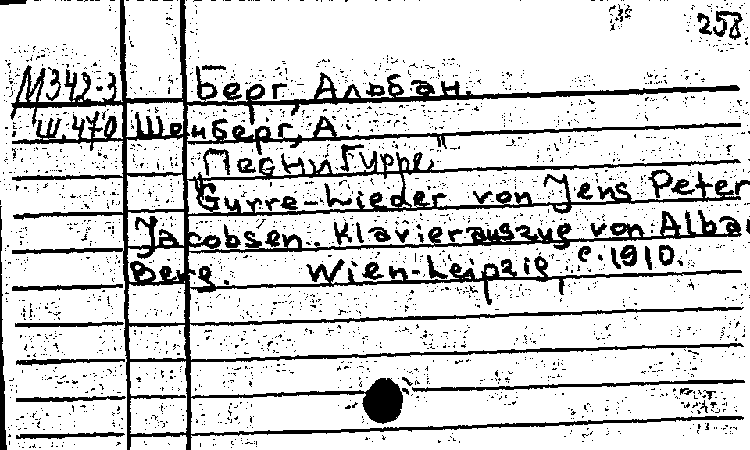 258
М342-3 Берг, Альбан.
Ш.470 Шенберг, А.
"Песни Гурре"
Gurre-Lieder von Jens Peter
Jacobsen. Klavierauszug von Alban
Berg. Wien-Leipzig, c.1910.